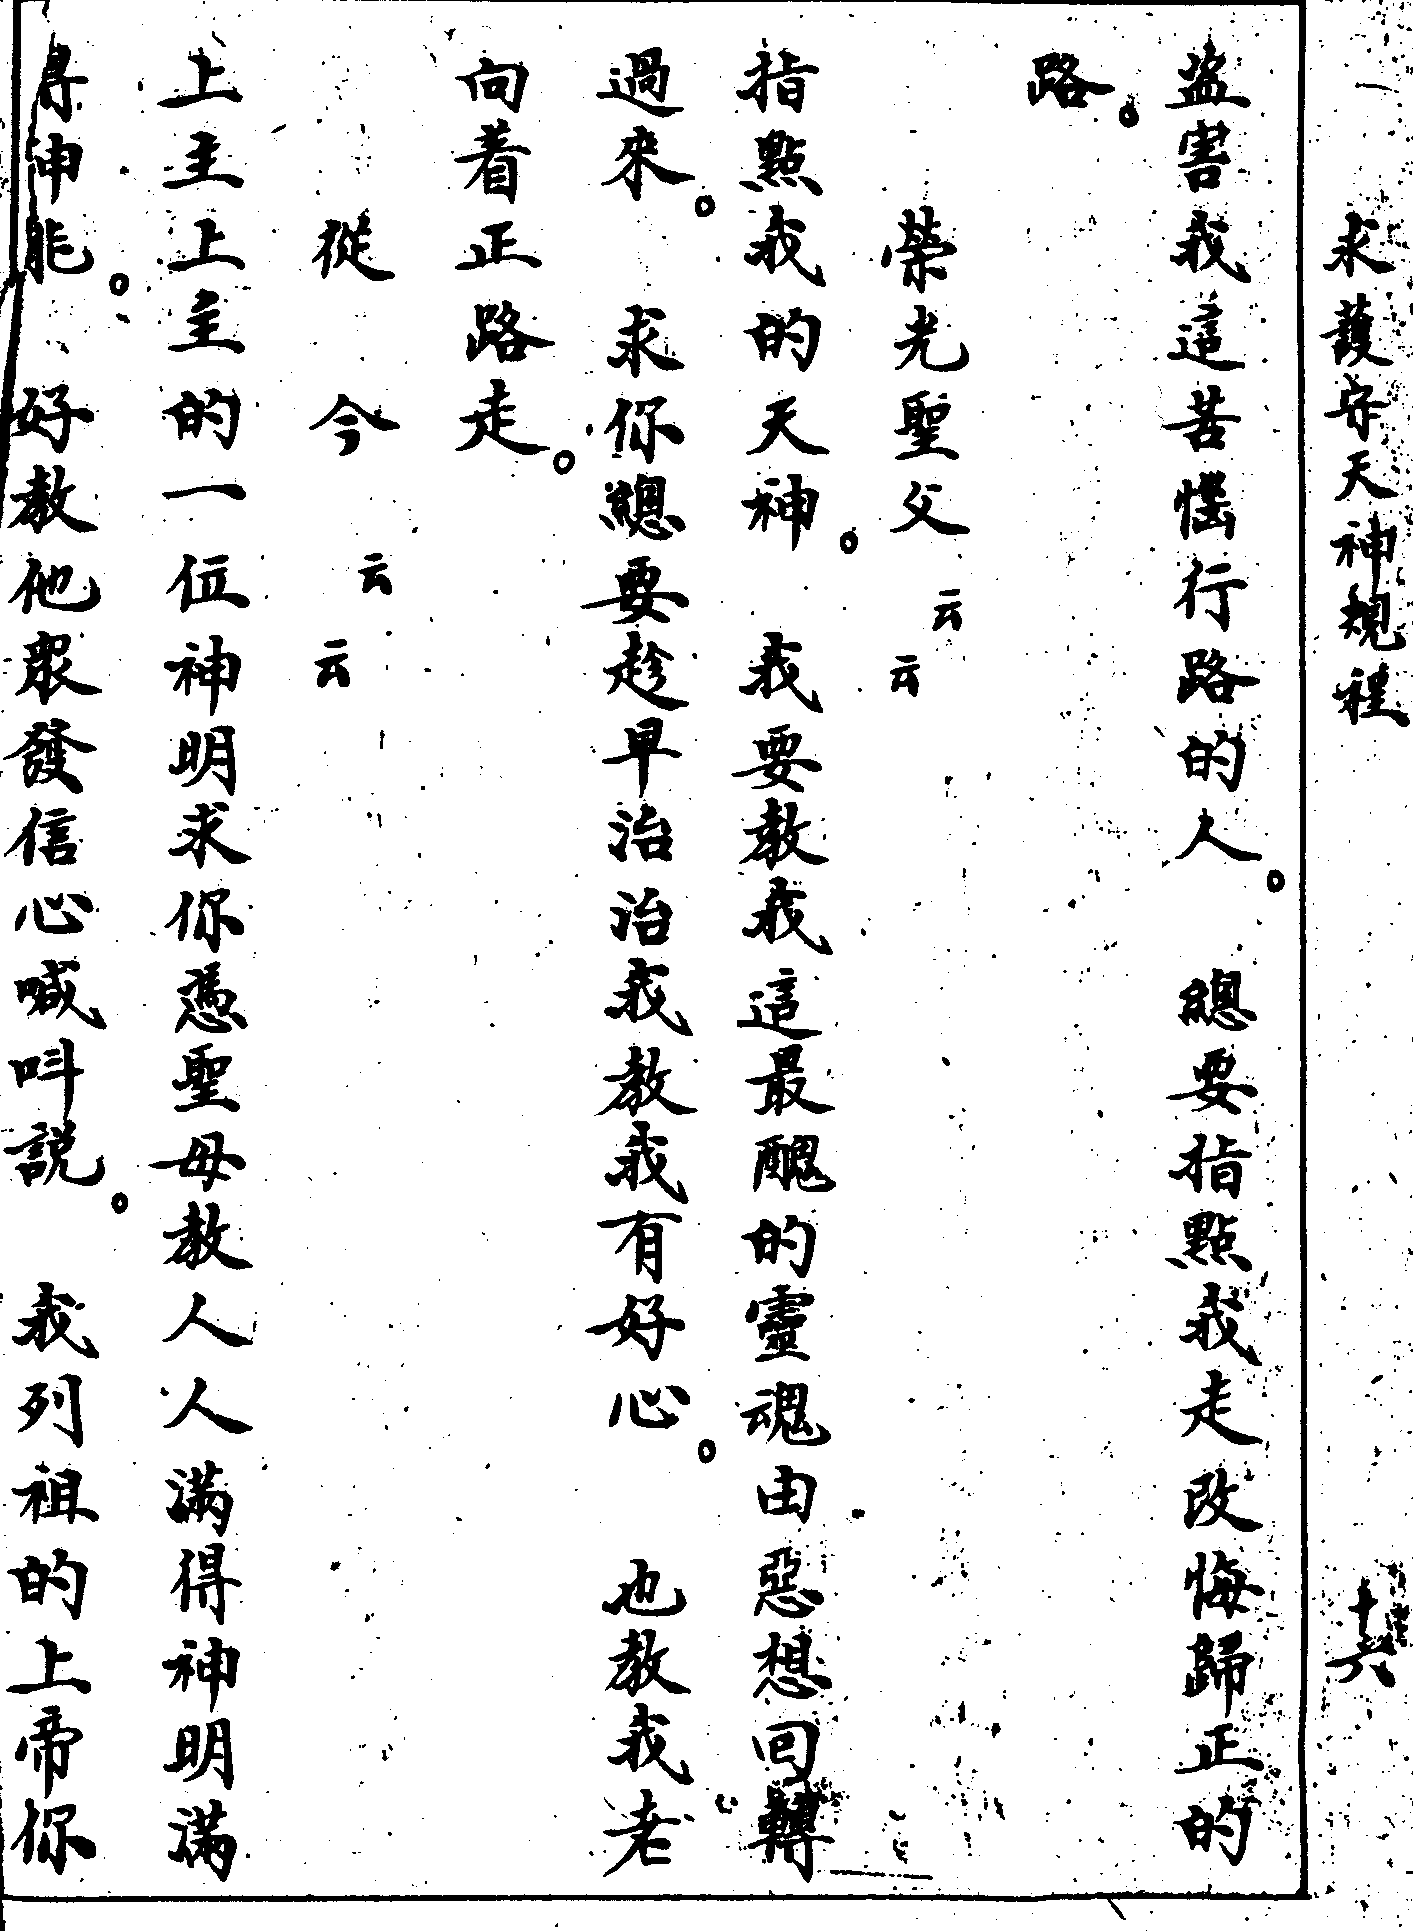 求護守天神規程 十六
盗害我這苦惱行路的人。總要指點我走改悔歸正的
路。
榮光聖父云云
指點我的天神。我要教我這最醜的靈魂由惡想回轉
過來。求你總要趁早治治我教我有好心。也教我老
向着正路走。
從今云云
上主上主的一位神明求你憑聖母教人人滿得神明滿
得神能。好教他眾發信心喊呌説。我列祖的上帝你